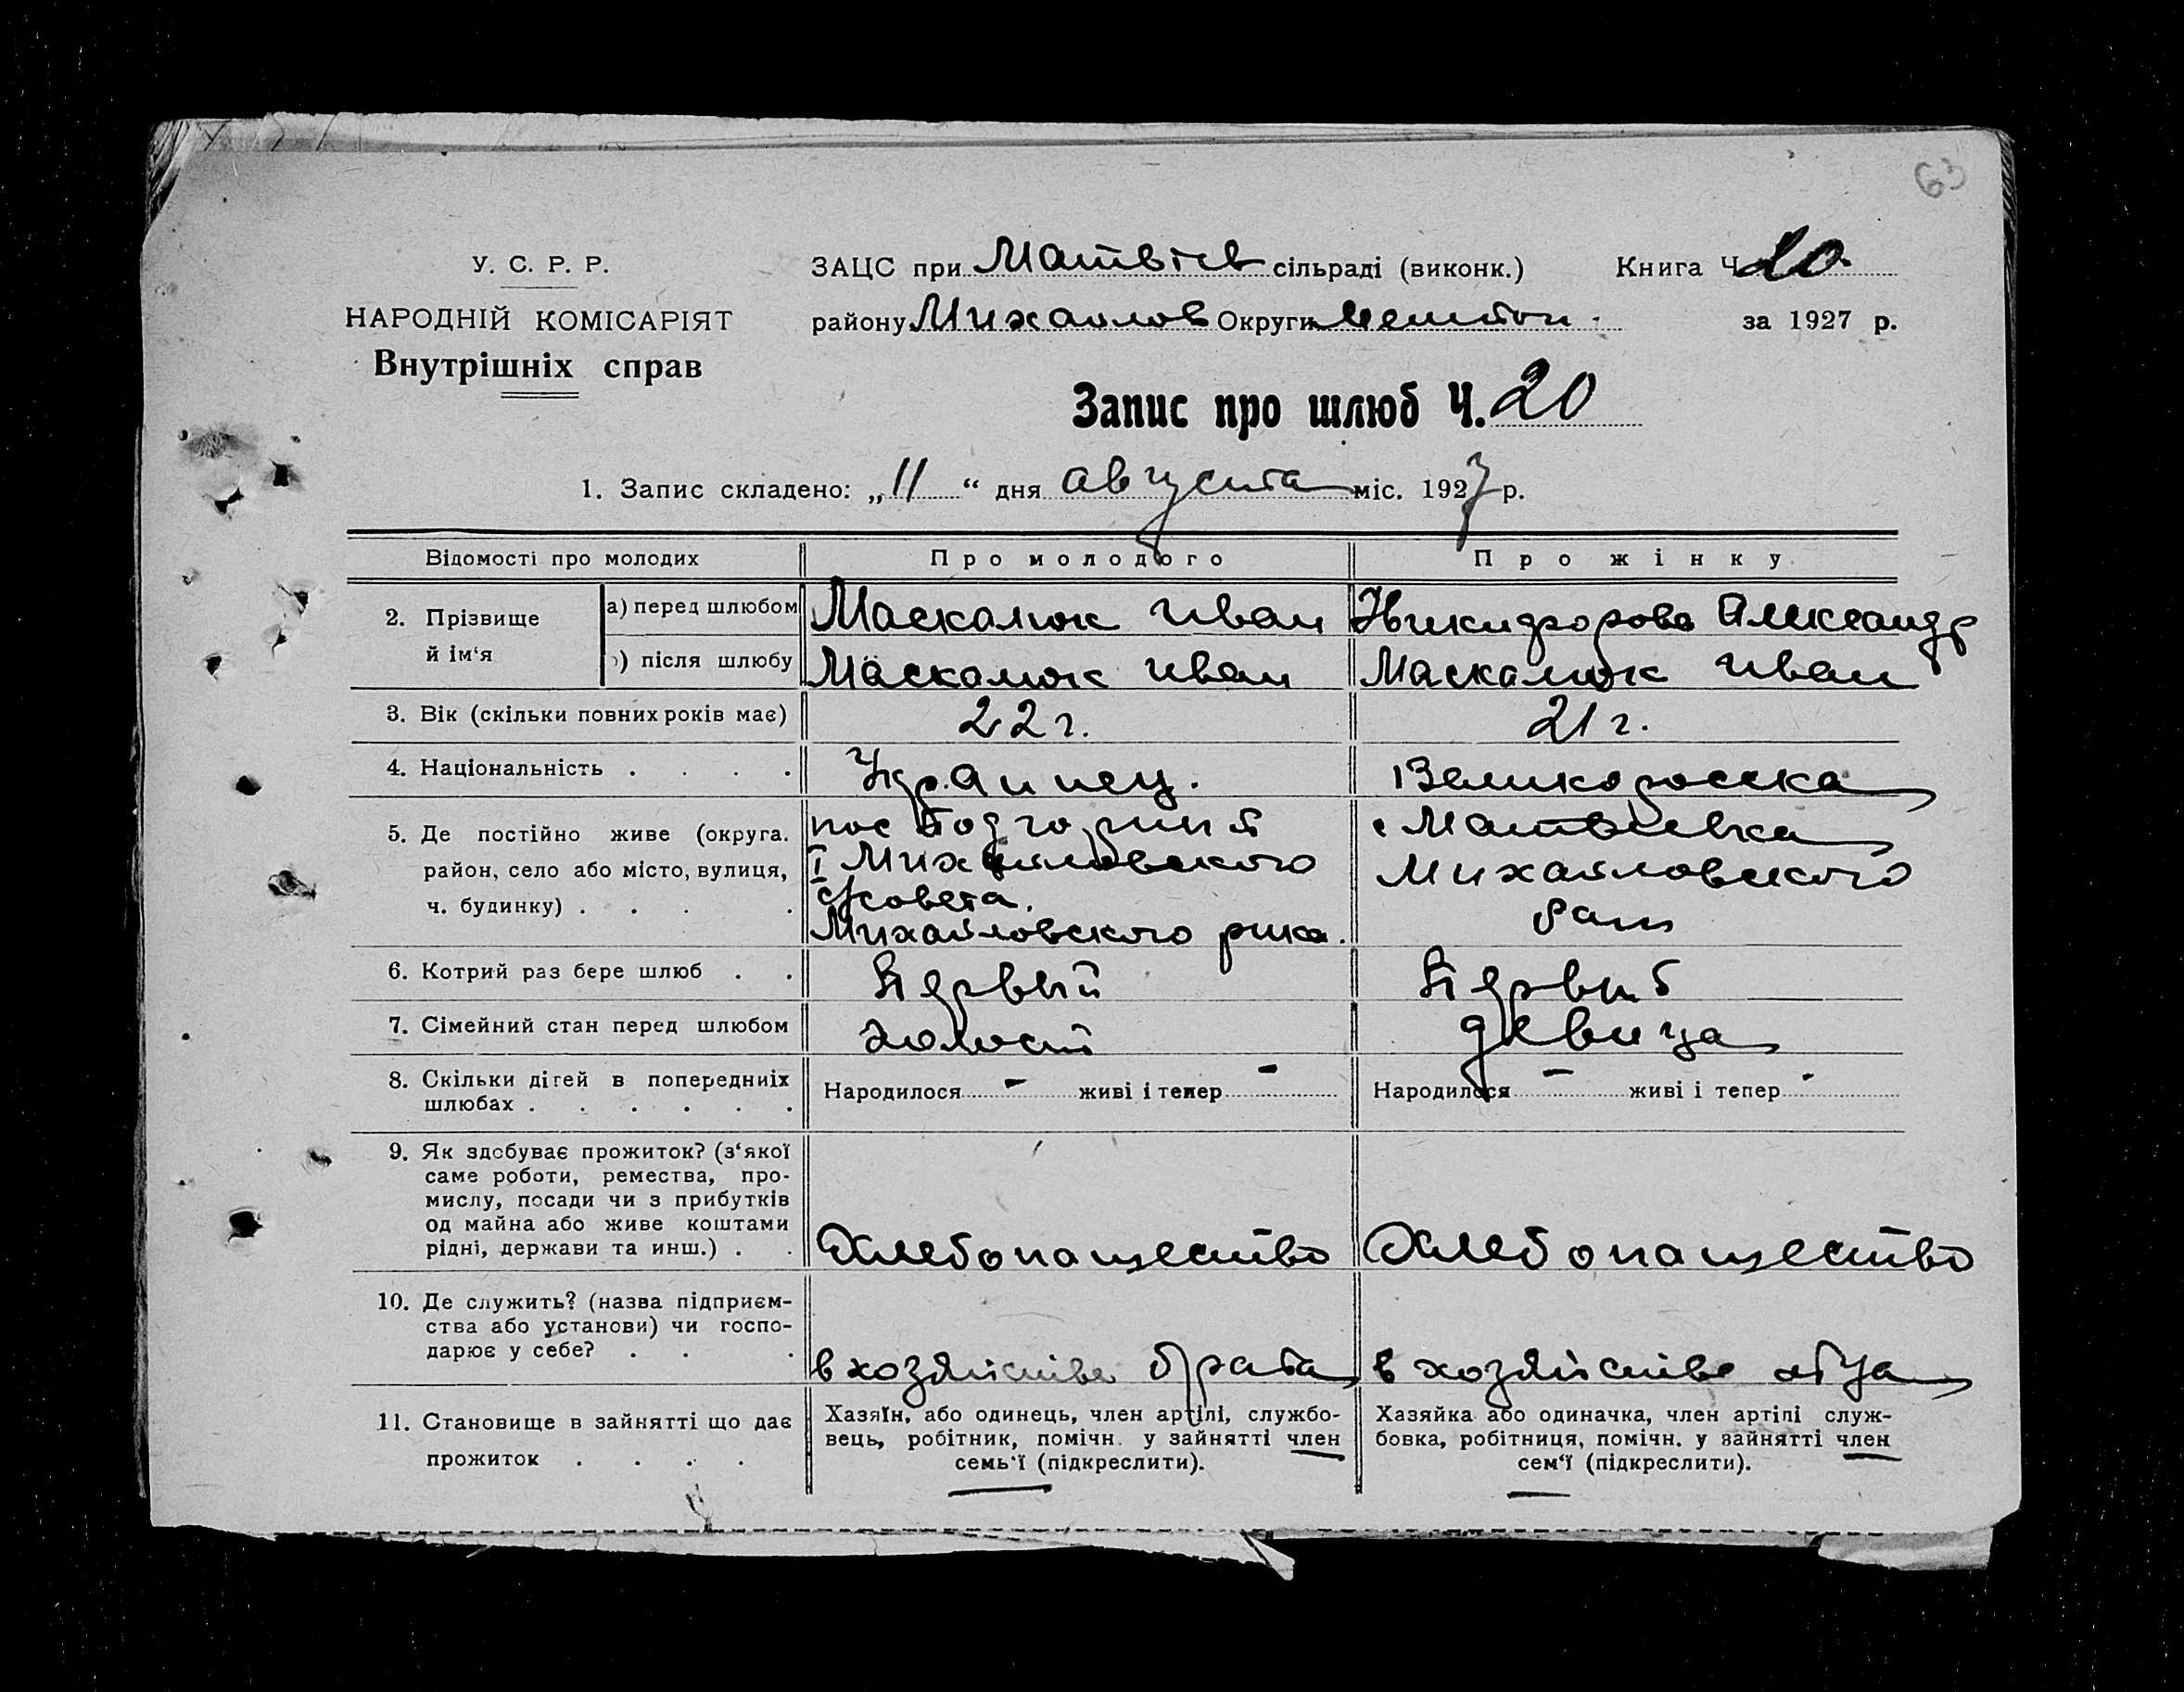 63
У. С. Р. Р.
НАРОДНІЙ КОМІСАРІЯТ
Внутрішніх справ
ЗАЦС при Матвіев сільраді (виконк.) Книга Ч. 20.
району Михайлов Округи за 1927 р.
Запис про шлюб Ч. 20
1. Запис складено: „11“ дня августа міс. 1927 р.
Відомості про молодих Про молодого Про жінку
2. Прізвище й ім‘я
а) перед шлюбом Маскалюк Иван Никифорова Александр
б) після шлюбу Маскалюк Иван Маскалюк Иван
3. Вік (скільки повних років має) 22 г. 21 г.
4. Національність . . . . Украинец. Великоросска
5. Де постійно живе (округа. район, село або місто, вулиця, ч. будинку) . . . .
пос Подгорний
I Михайловского
с/совета.
Михайловского рика.
с Матвеевка
Михайловского
6. Котрий раз бере шлюб . . Первый Первый
7. Сімейний стан перед шлюбом Холост девица
8. Скільки дітей в попередниіх шлюбах . . . . . . Народилося - живі і тепер - Народилося - живі і тепер -
9. Як здобуває прожиток? (з‘якої
саме роботи, ремества, про-
мислу, посади чи з прибутків
од майна або живе коштами
рідні, держави та инш.) . . Хлебопашество Хлебопашество
10. Де служить? (назва підприєм-
ства або установи) чи госпо-
дарює у себе? . . . в хозяйстве брата в хозяйстве отца
11. Становище в зайнятті що дає
прожиток . . . .
Хазяїн, або одинець, член артілі, службо-
вець, робітник, помічн. у зайнятті член
семь‘ї (підкреслити).
Хазяйка або одиначка, член артілі служ-
бовка, робітниця, помічн. у зайнятті член
сем‘ї (підкреслити).